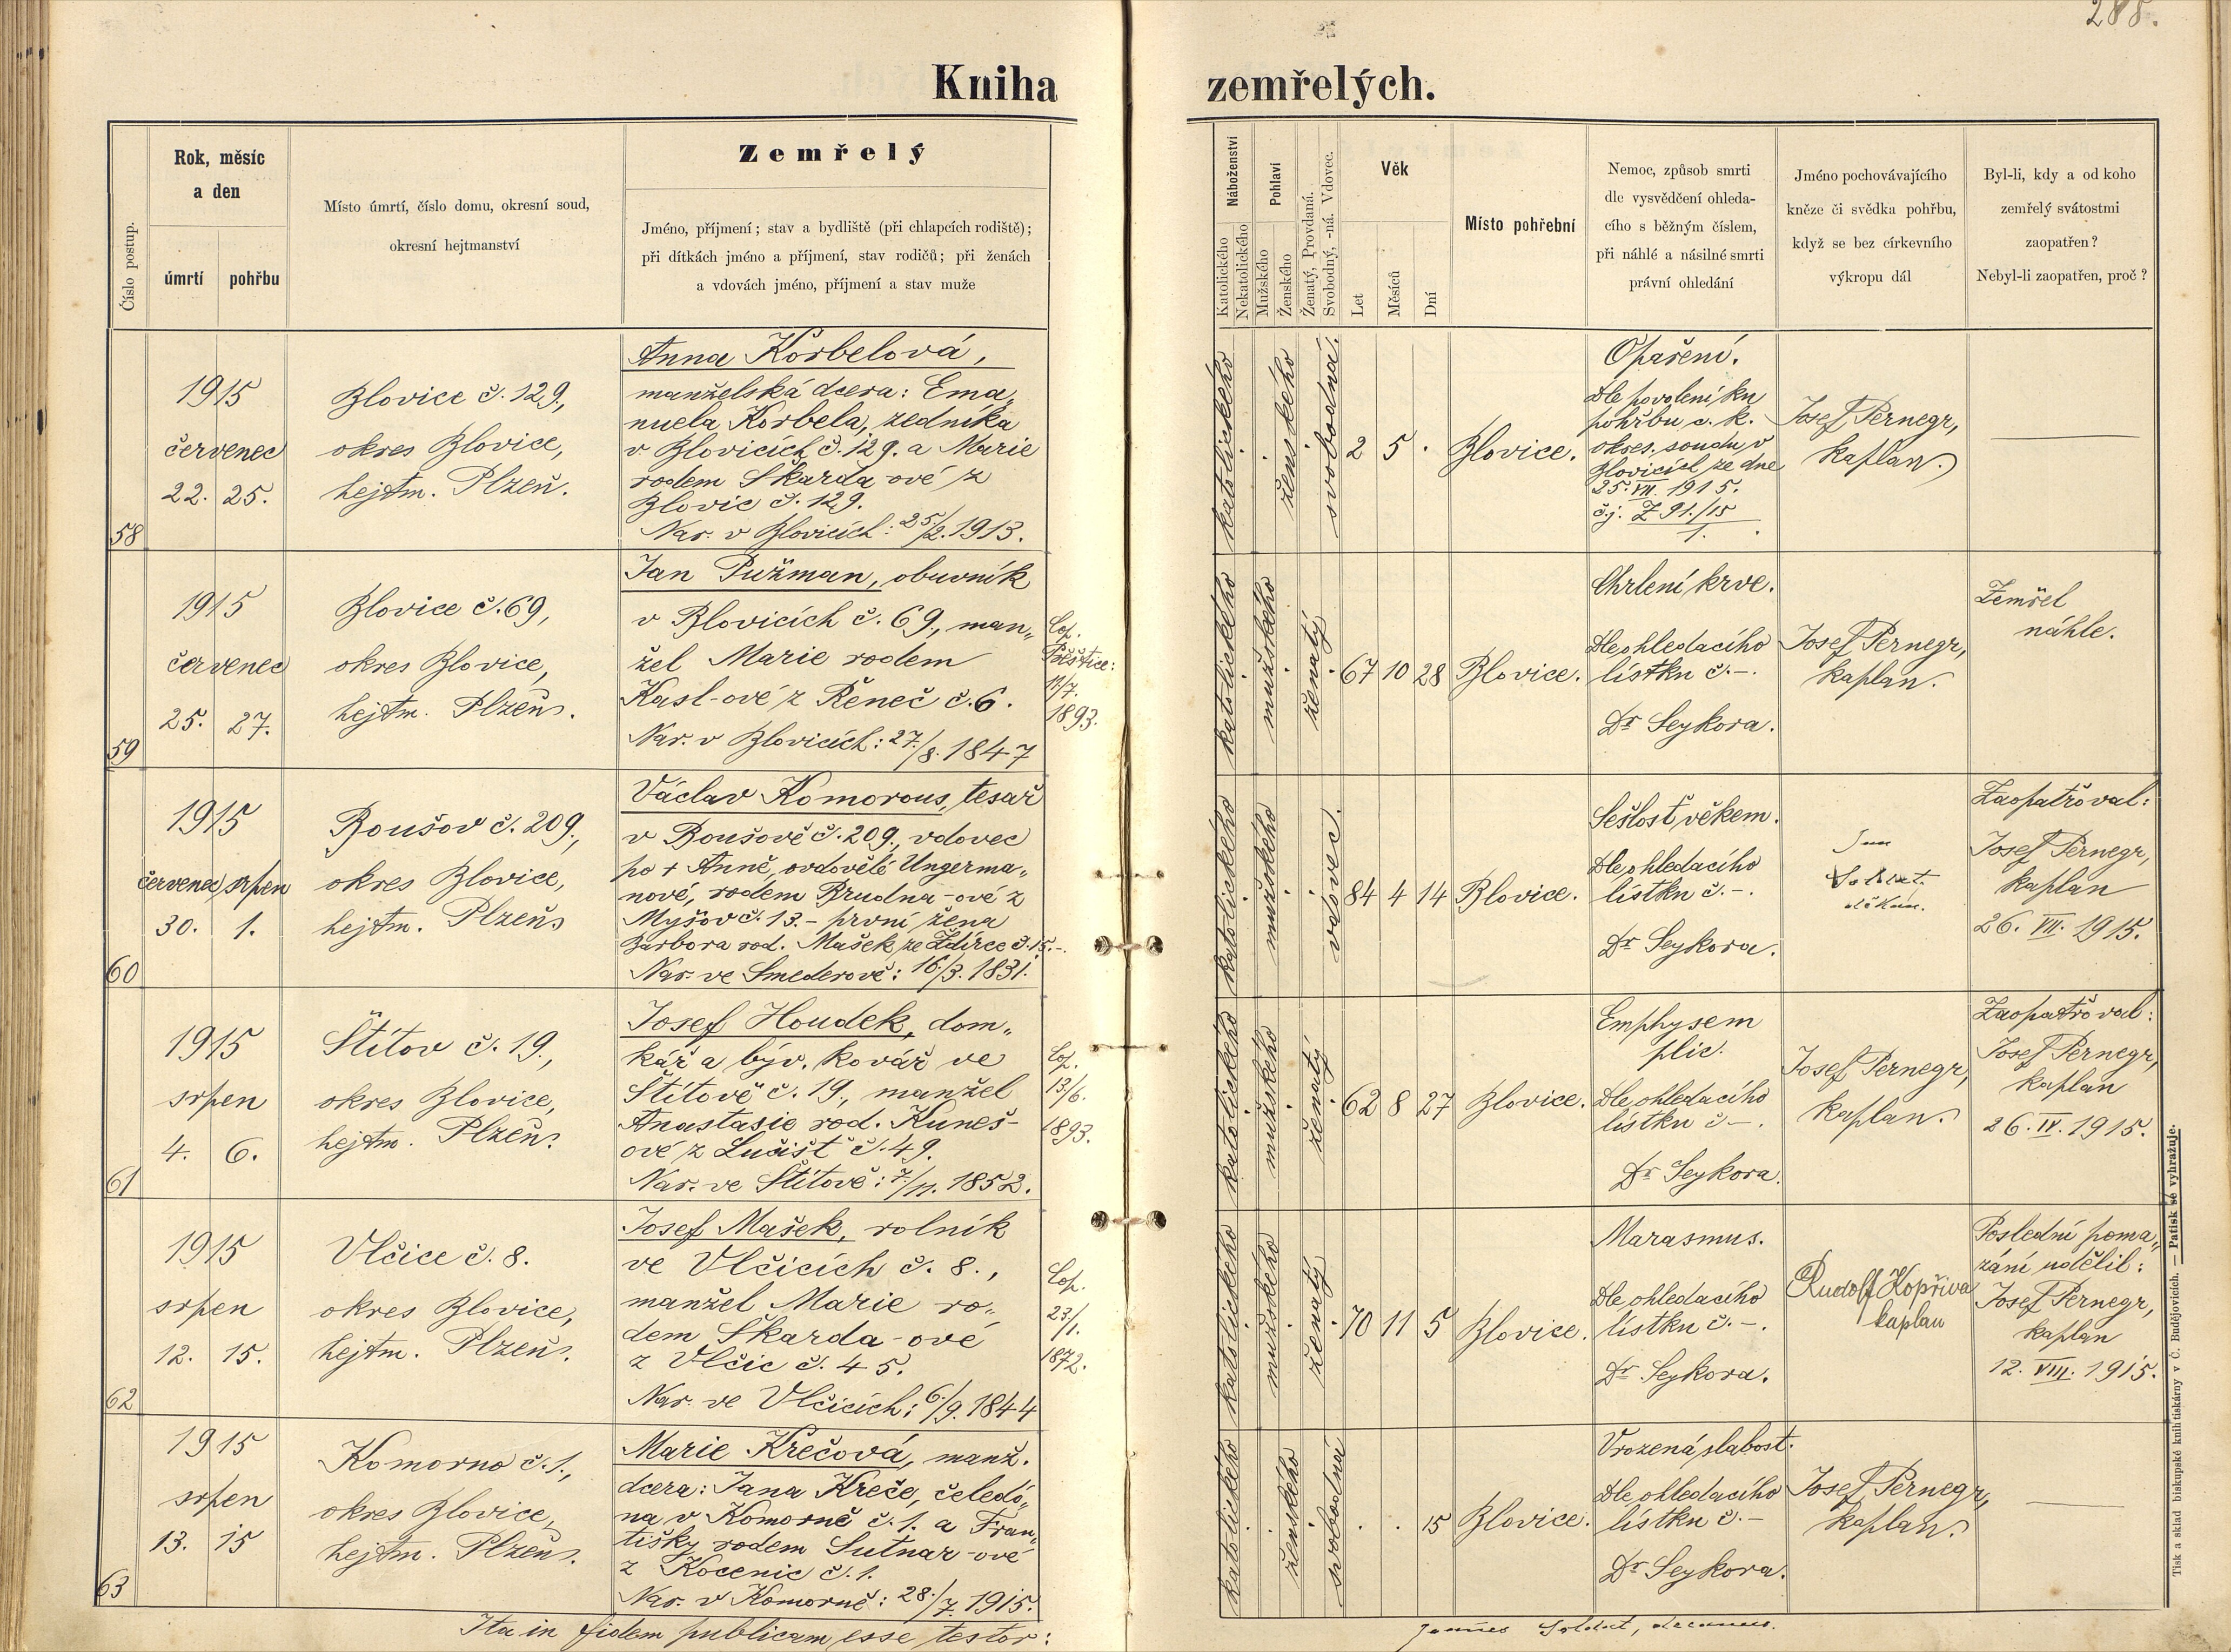 288.
Kniha zemřelých.
Číslo postup.
Rok, měsíc
a den
úmrtí
pohřbu
Místo úmrtí, číslo domu, okresní soud,
okresní hejtmanství
Zemřelý
Jméno, příjmení; stav a bydliště (při chlapcích rodiště);
při dítkách jméno a příjmení, stav rodičů; při ženách
a vdovách jméno, příjmení a stav muže
Náboženství
Katolického
Nekatolického
Pohlaví
Mužského
Ženského
Ženatý, Provdaná.
Svobodný, -ná. Vdovec.
Věk
Let
Měsíců
Dní
Místo pohřební
Nemoc, způsob smrti
dle vysvědčení ohleda-
cího s běžným číslem,
při náhlé a násilné smrti
právní ohledání
Jméno pochovávajícího
kněze či svědka pohřbu,
když se bez církevního
výkropu dál
Byl-li, kdy a od koho
zemřelý svátostmi
zaopatřen?
Nebyl-li zaopatřen, proč?
58
1915
červenec
22. 25.
Blovice č. 129.,
okres Blovice,
hejtm. Plzeň.
Anna Korbelová,
manželská dcera: Ema„
nuela Korbela, zedníka
v Blovicích č. 129. a Marie
rodem Škarda-ové z
Blovic č. 129.
Nar. v Blovicích: 25./2. 1913.
katolického
ženského
svobodná.
2 5 .
Blovice.
Opaření.
Dle povolení ku
pohřbu c. k.
okres. soudu v
Blovicích ze dne
25. VII. 1915.
č.j. Z 91./15
1.
Josef Pernegr,
kaplan.
59
1915
červenec
25. 27.
Blovice č. 69,
okres Blovice,
hejtm. Plzeň.
Jan Pužman, obuvník
v Blovicích č. 69., man„
žel Marie rodem
Kasl-ové z Řeneč č. 6.
Nar. v Blovicích: 27./8. 1847
Cop.
Přeštice:
11/7.
1893.
katolického
mužského
ženatý
67 10 28
Blovice.
Chrlení krve.
Dle ohledacího
lístku č. -.
Dr Seykora.
Josef Pernegr,
kaplan.
Zemřel
náhle.
60
1915
červenec srpen
30. 1.
Boušov č. 209.,
okres Blovice,
hejtm. Plzeň
Václav Komorous, tesař
v Boušově č. 209., vdovec
po + Anně, ovdovělé Ungerma-
nové, rodem Brudna-ové z
Myšov č. 13. - první žena
Barbora rod. Mašek ze Ždírce č. 15. -.
Nar. ve Smederově: 16./3. 1831.
katolického
mužského
vdovec.
84 4 14
Blovice.
Sešlost věkem.
Dle ohledacího
lístku č. -.
Dr Seykora.
Jan
Soldát.
děkan.
Zaopatřoval:
Josef Pernegr,
kaplan
26. VII. 1915.
61
1915
srpen
4. 6.
Štítov č. 19.,
okres Blovice,
hejtm. Plzeň.
Josef Houdek, dom„
kář a býv. kovář ve
Štítově č. 19., manžel
Anastasie rod. Kuneš-
ové z Lučišť č. 49.
Nar. ve Štítově: 7./11. 1852.
Cop.
13/6.
1893.
katolického
mužského
ženatý
62 8 27
Blovice.
Emphysem
plic.
Dle ohledacího
lístku č. -.
Dr Seykora.
Josef Pernegr,
kaplan.
Zaopatřoval:
Josef Pernegr,
kaplan
26. IV. 1915.
62
1915
srpen
12. 15.
Vlčice č. 8.
okres Blovice,
hejtm. Plzeň.
Josef Mašek, rolník
ve Vlčicích č. 8.,
manžel Marie ro„
dem Škarda-ové
z Vlčic č. 45.
Nar. ve Vlčicích: 6./9. 1844
Cop.
23/1.
1872.
katolického
mužského
ženatý
70 11 5
Blovice.
Marasmus.
Dle ohledacího
lístku č. -.
Dr Seykora.
Rudolf Kopřiva
kaplan
Poslední poma„
zání udělil:
Josef Pernegr,
kaplan
12. VIII. 1915.
63
1915
srpen
13. 15
Komorno č. 1.,
okres Blovice,
hejtm. Plzeň.
Marie Krečová, manž.
dcera: Jana Kreče, čeledí„
na v Komorně č. 1. a Fran„
tišky rodem Sutnar-ové
z Kocenic č. 1.
Nar. v Komorně: 28./7. 1915.
katolického
ženského
svobodná
. . 15
Blovice.
Vrozená slabost.
Dle ohledacího
lístku č. -
Dr Seykora.
Josef Pernegr,
kaplan.
Ita in fidem publicam esse testor:
Joannes Soldát, decanus.
Tisk a sklad biskupské knihtiskárny v Č. Budějovicích. — Patisk se vyhražuje.